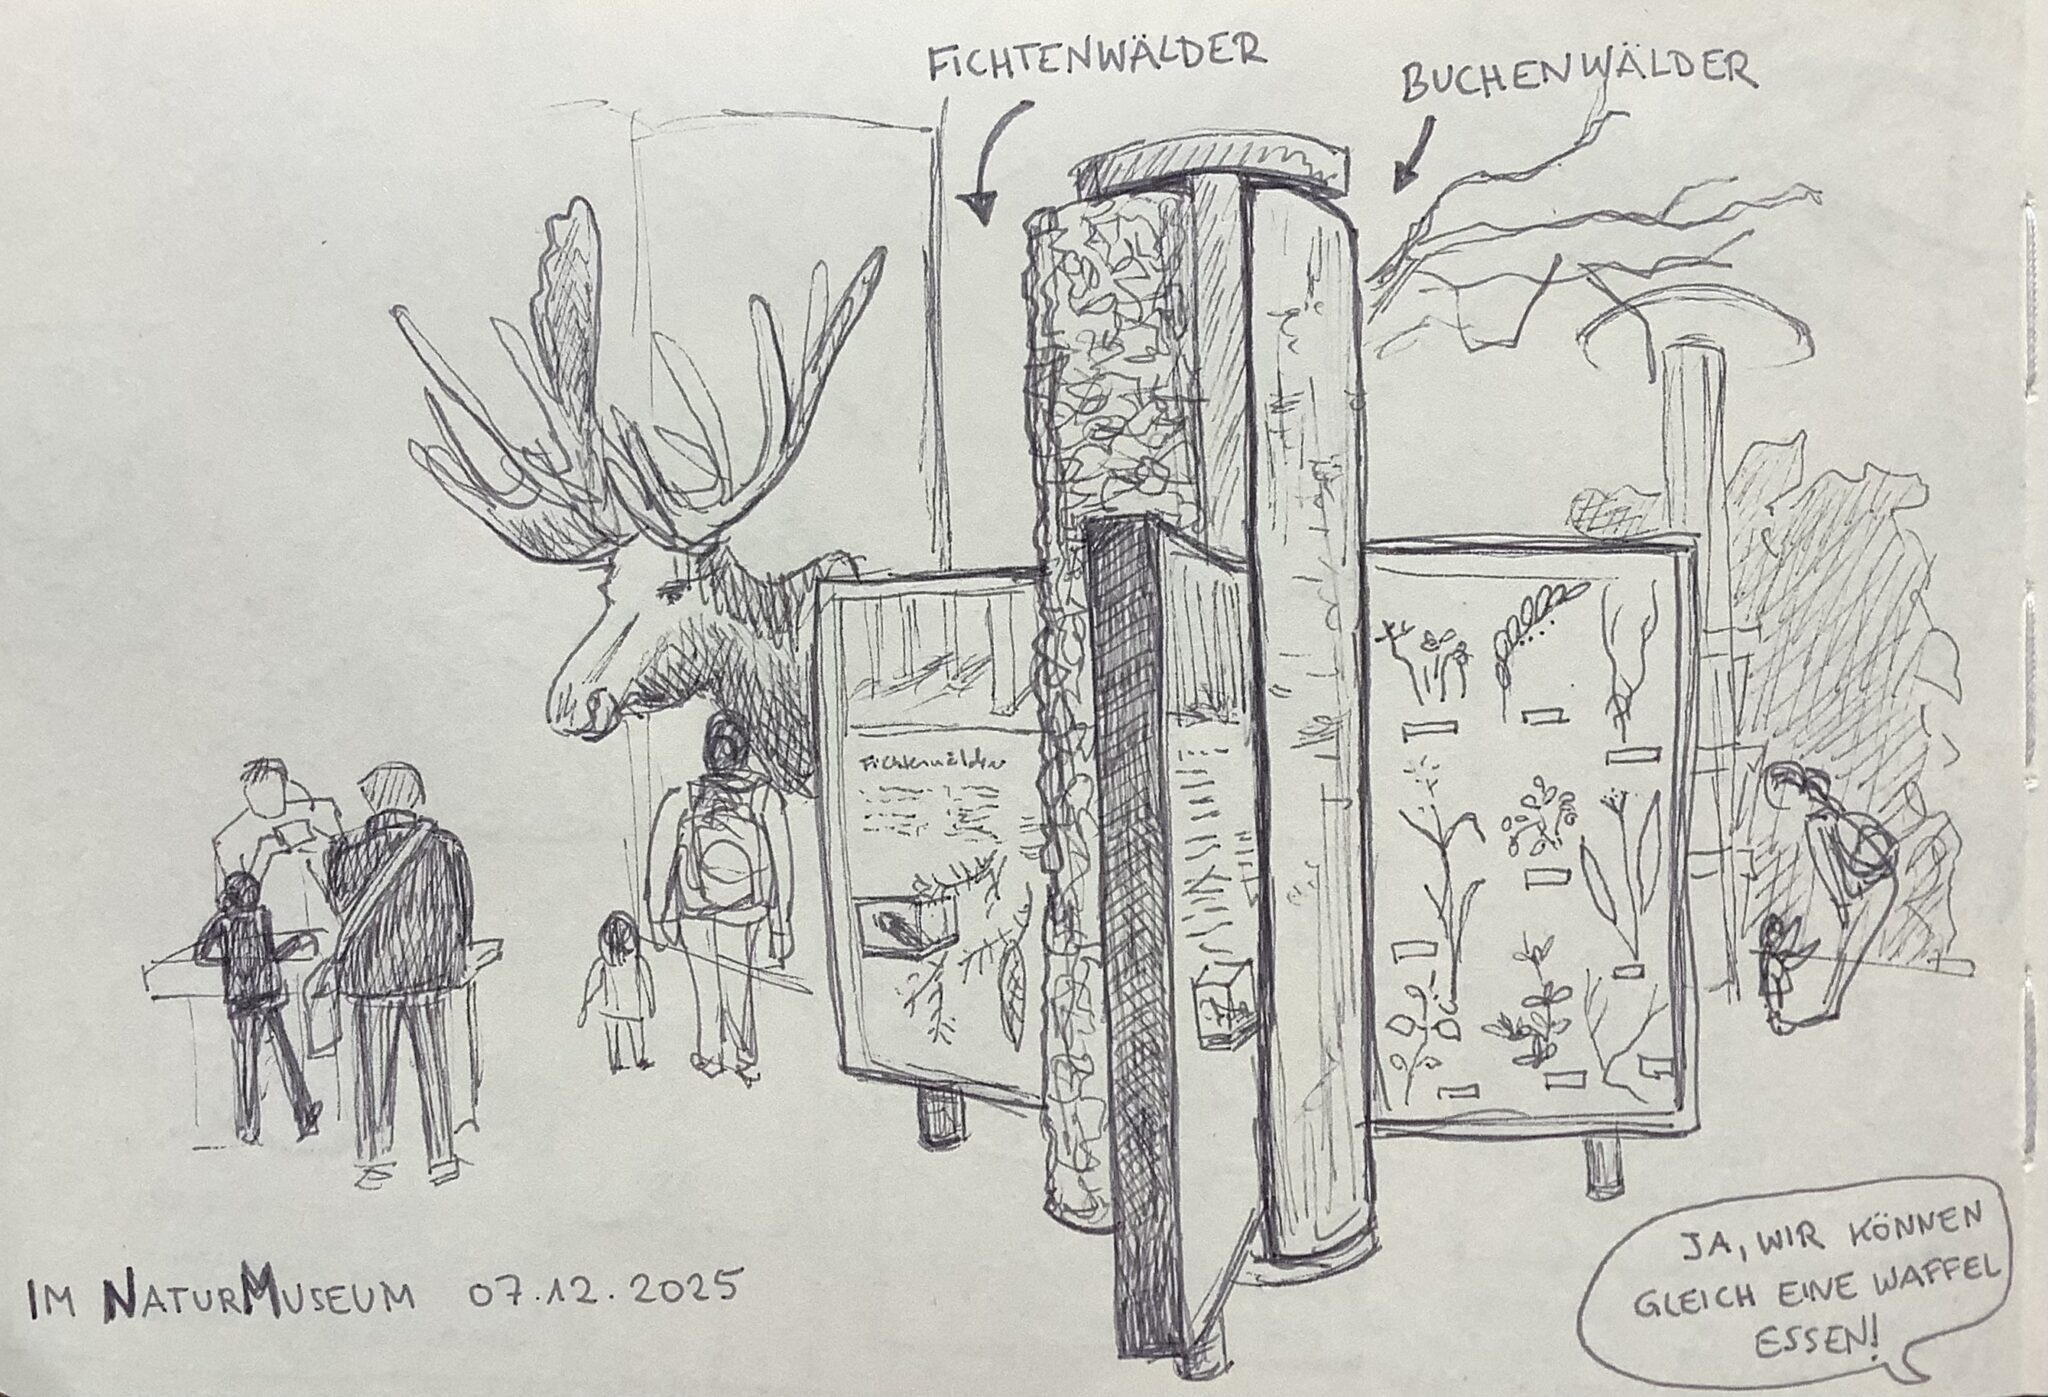 FICHTENWÄLDER
BUCHENWÄLDER
Fichtenwälder
IM NATURMUSEUM 07.12.2025
JA, WIR KÖNNEN
GLEICH EINE WAFFEL
ESSEN!